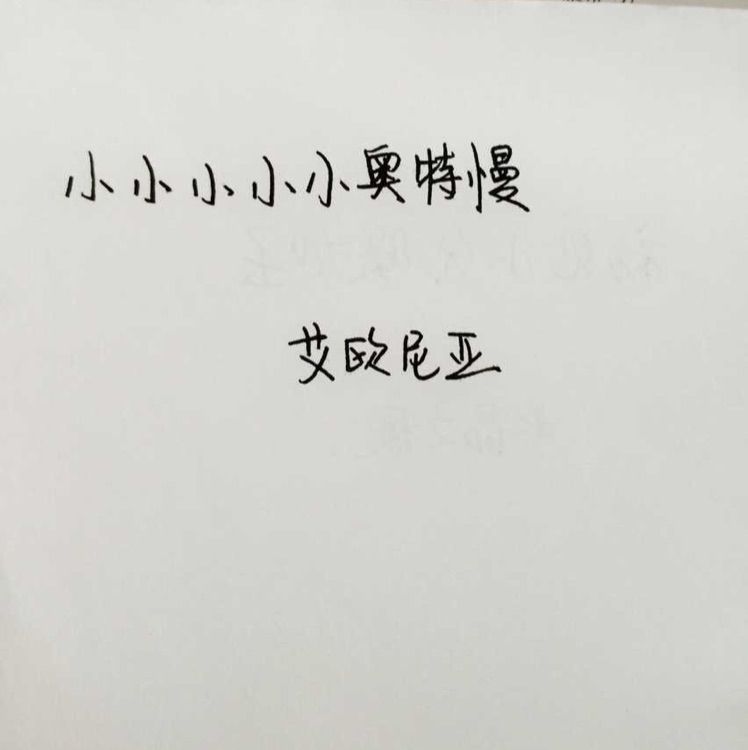 小小小小小奥特慢
艾欧尼亚